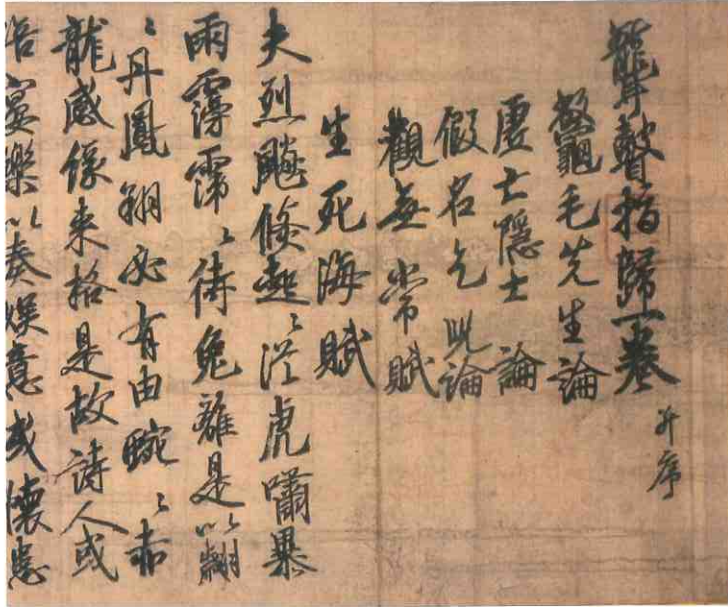 聾瞽指歸一卷 并序
鼈毛先生論
虛亡隱士論
假名乞兒論
觀無常賦
生死海賦
夫烈飈倏起〻從虎嘯暴
雨霶霈〻待兔離是以翩
〻丹鳳翔必有由蜿〻赤
龍感緣來格是故詩人或
宴樂以奏娛意或懷患